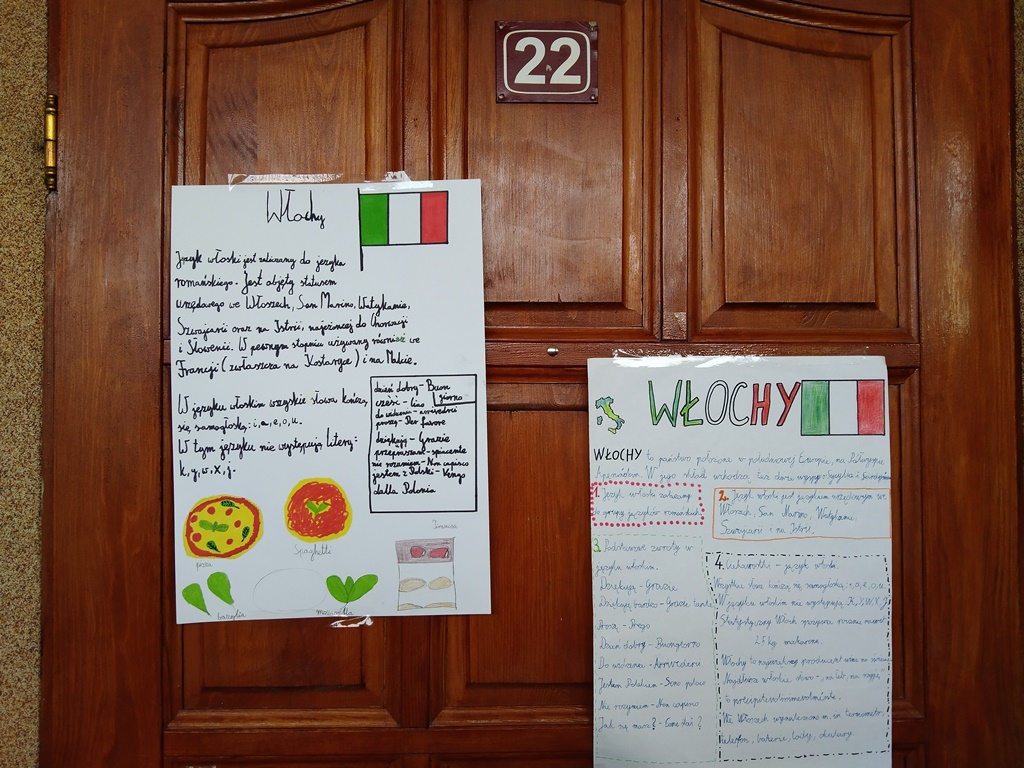 22
Włochy
Język włoski jest zaliczany do języka
romańskiego. Jest objęty statusem
urzędowego we Włoszech, San Marino, Watykanie,
Szwajcarii oraz na Istrii, należącej do Chorwacji
i Słowenii. W pewnym stopniu używany również we
Francji (zwłaszcza na Korsyce) i na Malcie.
W języku włoskim wszyskie słowa kończą
się samogłoską: i, a, e, o, u.
W tym języku nie występują litery:
k, y, w, x, j.
dzień dobry - Buon
giorno
cześć - Ciao
do widzenia - arrivederci
proszę - Per favore
dziękuję - Grazie
przepraszam -
nie rozumiem - Non capisco
jestem z Polski - Vengo
dalla Polonia
Spaghetti
bazylia
mozarella
WŁOCHY
WŁOCHY to państwo położone w południowej Europie, na Półwyspie
Apenińskim. W jego skład wchodzą też dwie wyspy: Sycylia i Sardynia
1. Język włoski zaliczany
do grupy języków romańskich
2. Język włoski jest językiem urzędowym we
Włoszech, San Marino, Watykanie,
Szwajcarii i na Istri.
3. Podstawowe zwroty w
języku włoskim.
Dziękuję - Grazie
Dziękuję bardzo - Grazie tante
Proszę - Prego
Dzień dobry - Buongiorno
Do widzenia - Arrivederci
Jestem Polakiem - Sono polacco
Nie rozumiem - Non capisco
Jak się masz? - Come stai?
4. Ciekawostki - język włoski.
Wszystkie słowa kończą się samogłoską: i, a, e, o, u.
W języku włoskim nie występują K, Y, W, X, J
Statystyczny Włoch spożywa rocznie
25 kg makaronu.
Włochy to największy producent wina na świecie
Najdłuższe włoskie słowo -
to precipitevolissimevolmente.
We Włoszech wynaleziono m.in. termometr,
telefon, baterie, lody, okulary.